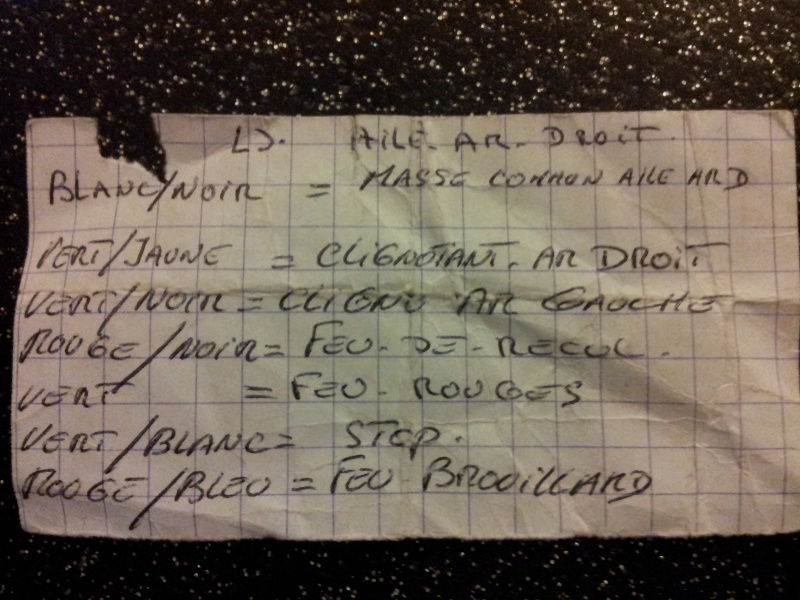 AILE. AR. DROIT.
BLANC/NOIR = MASSE COMMUN AILE ARD
VERT/JAUNE = CLIGNOTANT. AR DROIT
VERT/NOIR = CLIGNO AR GAUCHE
ROUGE/NOIR = FEU. DE. RECUL.
VERT = FEU. ROUGES
VERT/BLANC = STOP.
ROUGE/BLEU = FEU BROUILLARD